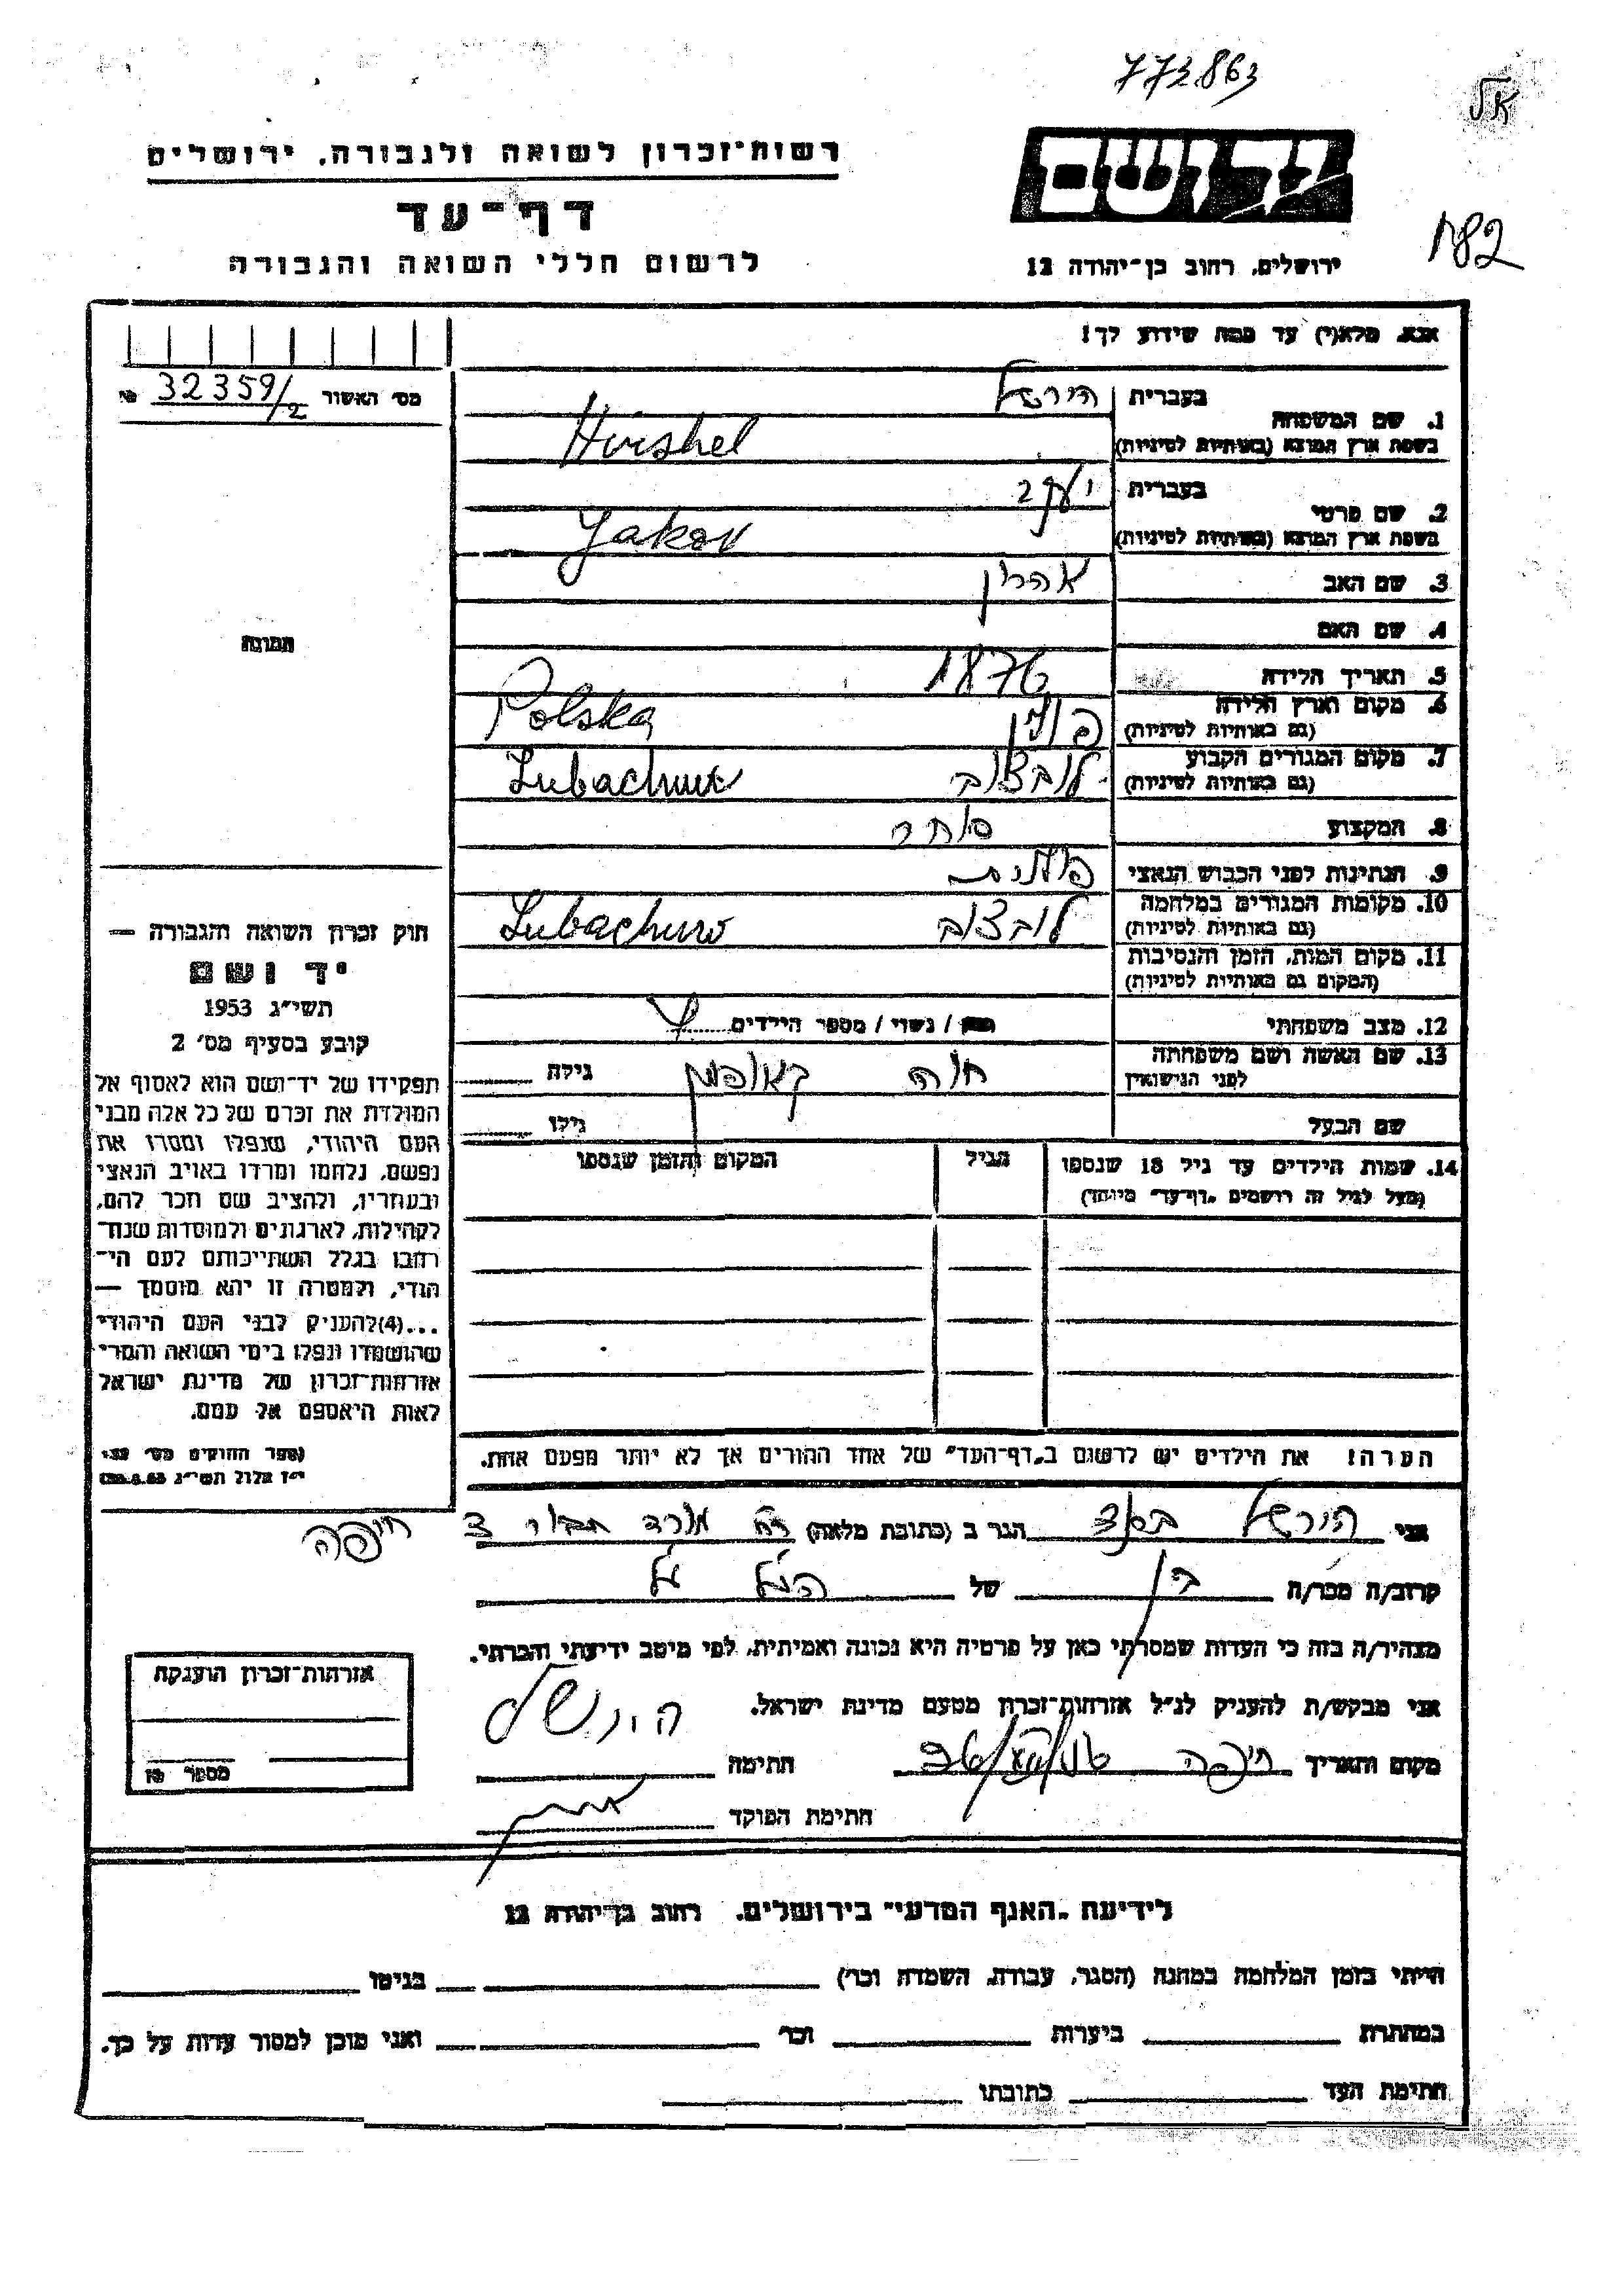 773863
אל
רשות־זכרון לשואה ולגבורה, ירושלים
דף־עד
לרשום חללי השואה והגבורה
יד ושם
ירושלים, רחוב בן־יהודה 12
182
אנא, מלא(י) עד כמה שידוע לך!
מס׳ האשור № 32359/2
1. שם המשפחה בעברית הירשל
בשפת ארץ המוצא (באותיות לטיניות) Hirshel
2. שם פרטי בעברית יעקב
בשפת ארץ המוצא (באותיות לטיניות) Jakov
3. שם האב אהרון
4. שם האם
5. תאריך הלידה 1876
6. מקום וארץ הלידה
(גם באותיות לטיניות) פולין Polska
7. מקום המגורים הקבוע
(גם באותיות לטיניות) לובצוב Lubachuw
8. המקצוע סוחר
9. הנתינות לפני הכבוש הנאצי פולנית
10. מקומות המגורים במלחמה
(גם באותיות לטיניות) לובצוב Lubachuw
11. מקום המות, הזמן והנסיבות
(המקום גם באותיות לטיניות)
12. מצב משפחתי רווק / נשוי / מספר הילדים 4
13. שם האשה ושם משפחתה
לפני הנישואין חוה קאופמן גילה
שם הבעל גילו
14. שמות הילדים עד גיל 18 שנספו הגיל המקום והזמן שנספו
(מעל לגיל זה רושמים „דף־עד״ מיוחד)
הערה! את הילדים יש לרשום ב„דף־העד״ של אחד ההורים אך לא יותר מפעם אחת.
תמונה
חוק זכרון השואה והגבורה —
יד ושם
תשי״ג 1953
קובע בסעיף מס׳ 2
תפקידו של יד־ושם הוא לאסוף אל
המולדת את זכרם של כל אלה מבני
העם היהודי, שנפלו ומסרו את
נפשם, נלחמו ומרדו באויב הנאצי
ובעוזריו, ולהציב שם וזכר להם,
לקהילות, לארגונים ולמוסדות שנח־
רבו בגלל השתייכותם לעם הי־
הודי, ולמטרה זו יהא מוסמך —
...(4) להעניק לבני העם היהודי
שהושמדו ונפלו בימי השואה והמרי
אזרחות־זכרון של מדינת ישראל
לאות היאספם אל עמם.
(ספר החוקים מס׳ 132,
י״ז אלול תשי״ג 28.8.53)
אני הירשל הגר ב (כתובת מלאה) רח מורד 3 חיפה
קרוב/ה מכר/ה בן של הנ״ל
מצהיר/ה בזה כי העדות שמסרתי כאן על פרטיה היא נכונה ואמיתית, לפי מיטב ידיעתי והכרתי.
אני מבקש/ת להעניק לנ״ל אזרחות־זכרון מטעם מדינת ישראל.
מקום ותאריך חיפה חתימה הירשל
חתימת הפוקד
אזרחות־זכרון הוענקה
מספר №
לידיעת „האגף המדעי״ בירושלים, רחוב בן־יהודה 12
הייתי בזמן המלחמה במחנה (הסגר, עבודה, השמדה וכו׳) בגיטו
במחתרת ביערות וכו׳ ואני מוכן למסור עדות על כך.
חתימת העד כתובתו